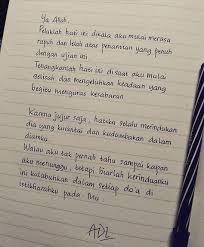 Ya Allah,
Peluklah hati ini dikala aku mulai merasa
rapuh dan lelah atas penantian yang penuh
dengan ujian ini
Tenangkanlah hati ini disaat aku mulai
gelisah dan mengeluhkan keadaan yang
begitu menguras kesabaran
Karena jujur saja, hatiku selalu merindukan
dia yang kucintai dan kudambakan dalam
diamku
Walau aku tak pernah tahu sampai kapan
aku menunggu, tetapi biarlah kerinduanku
ini kulabuhkan dalam setiap do'a di
istikharahku pada Mu.
ADL